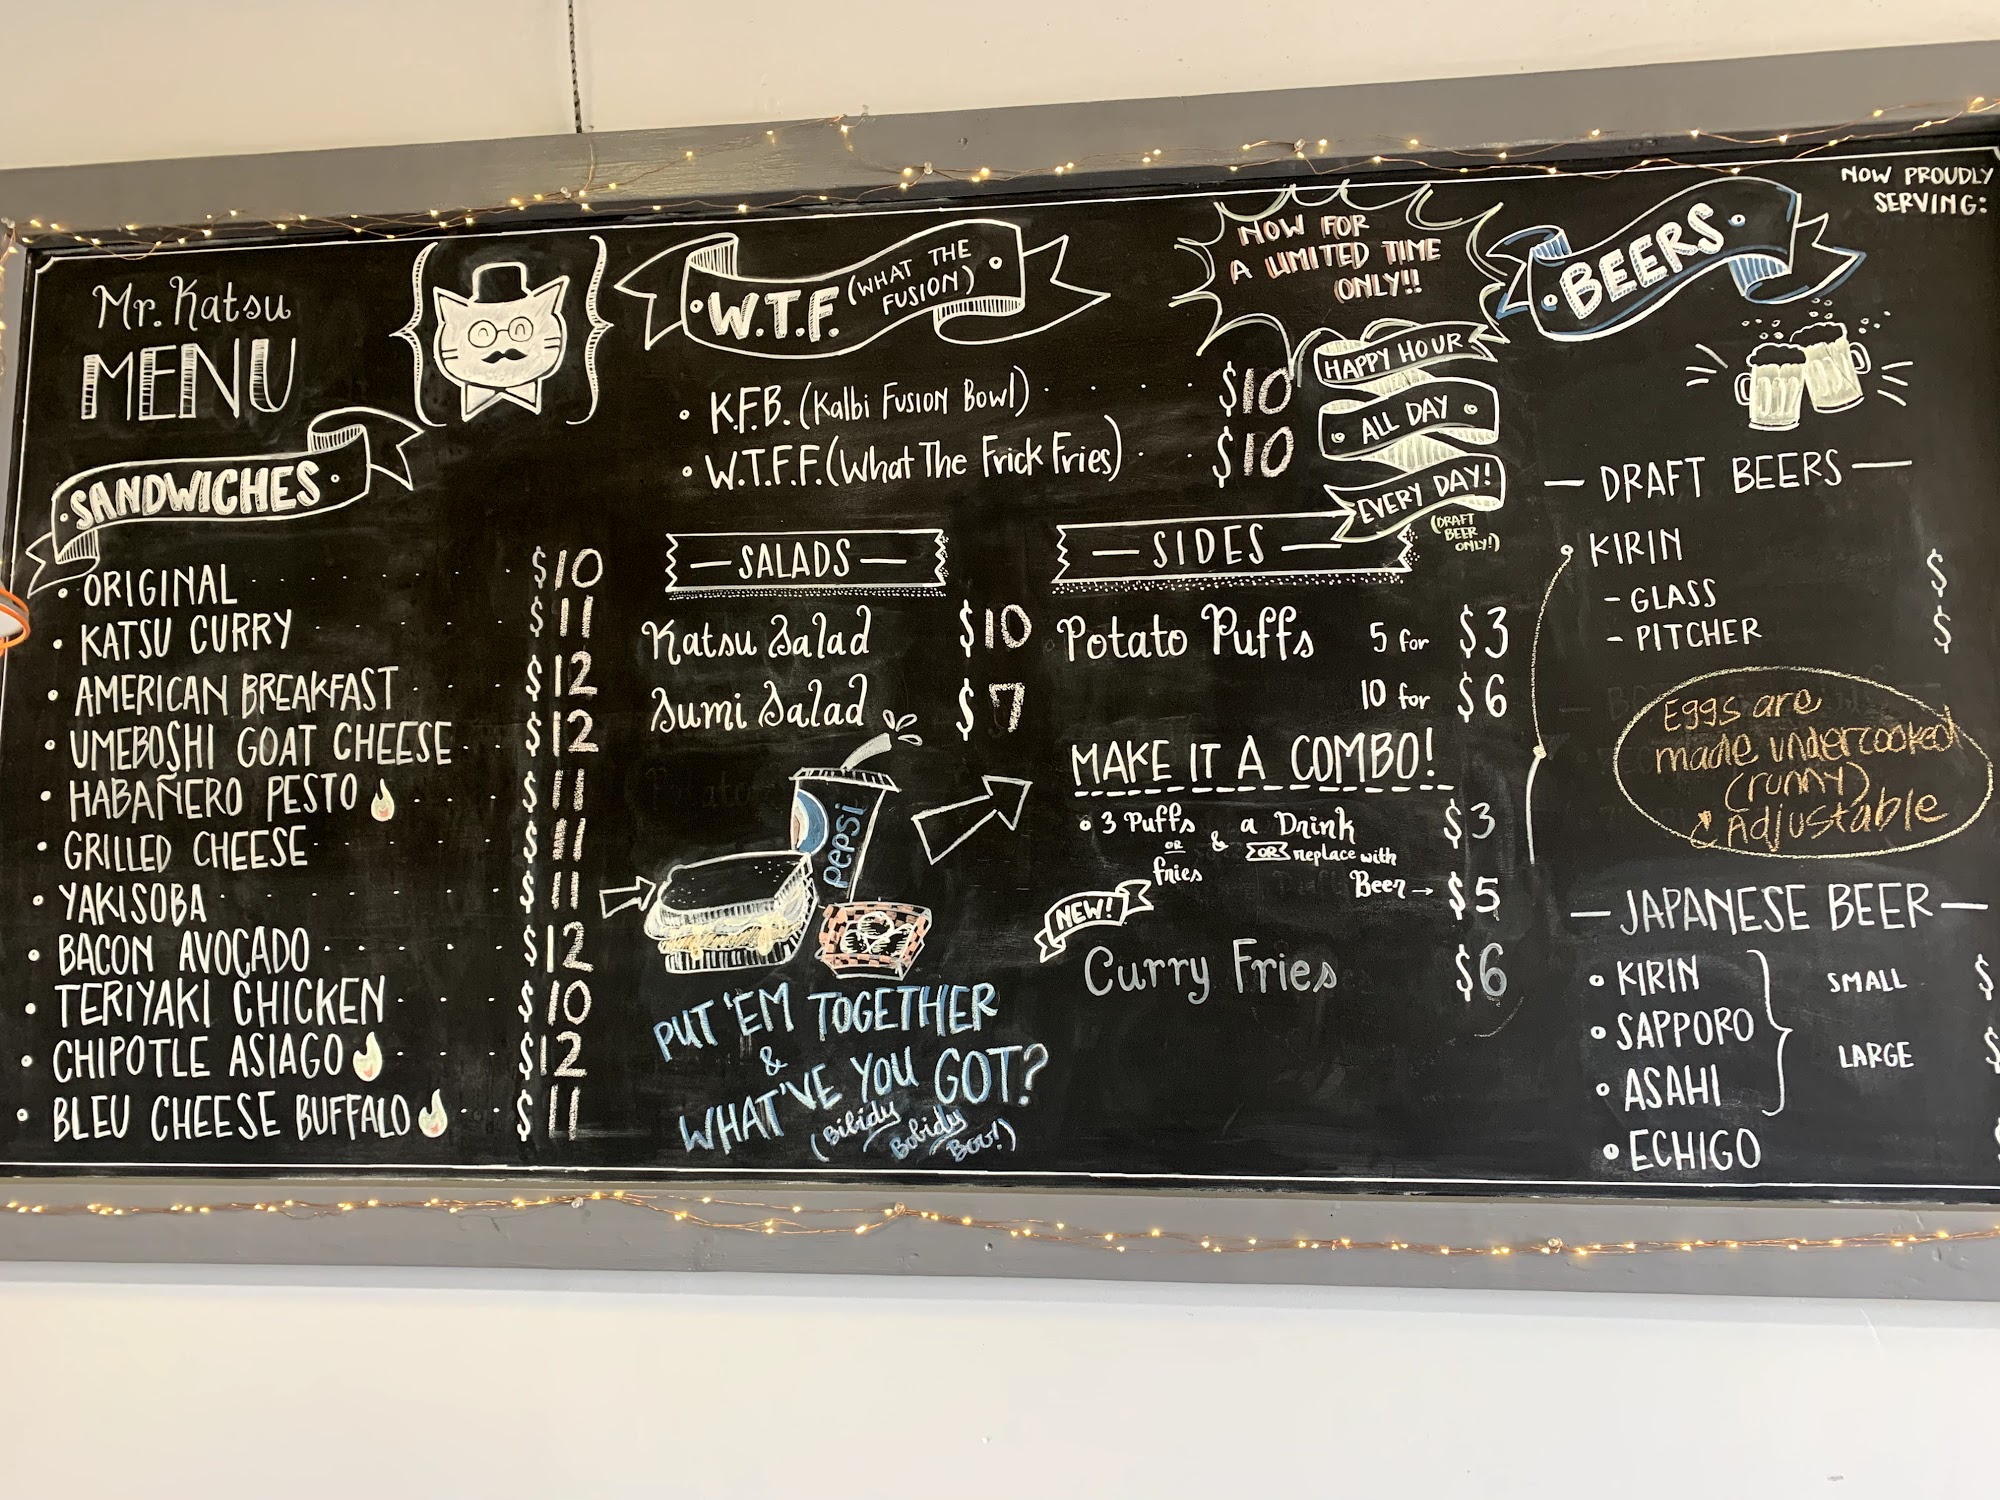 Mr. Katsu
MENU
SANDWICHES
• ORIGINAL . . . . . . . . . . $10
• KATSU CURRY . . . . . . . $11
• AMERICAN BREAKFAST . . . . $12
• UMEBOSHI GOAT CHEESE . . $12
• HABAÑERO PESTO . . . . $11
• GRILLED CHEESE . . . . . . $11
• YAKISOBA . . . . . . . . . $11
• BACON AVOCADO . . . . . . $12
• TERIYAKI CHICKEN . . . . $10
• CHIPOTLE ASIAGO . . . . $12
• BLEU CHEESE BUFFALO . . $11
W.T.F. (WHAT THE
FUSION)
• K.F.B. (Kalbi Fusion Bowl) . . . . . $10
• W.T.F.F. (What The Frick Fries) . . $10
NOW FOR
A LIMITED TIME
ONLY!!
HAPPY HOUR
ALL DAY
EVERY DAY!
(DRAFT
BEER
ONLY!)
— SALADS —
Katsu Salad $10
Sumi Salad $7
pepsi
PUT 'EM TOGETHER
&
WHAT'VE YOU GOT?
(Bibidy
Bobidy
Boo!)
— SIDES —
Potato Puffs 5 for $3
10 for $6
MAKE IT A COMBO!
• 3 Puffs & a Drink $3
OR
fries
OR replace with
Beer → $5
NEW!
Curry Fries $6
BEERS
NOW PROUDLY
SERVING:
— DRAFT BEERS —
KIRIN
- GLASS $
- PITCHER $
Eggs are
made undercooked
(runny)
& Adjustable
— JAPANESE BEER —
• KIRIN
• SAPPORO
• ASAHI
SMALL $
LARGE $
• ECHIGO $